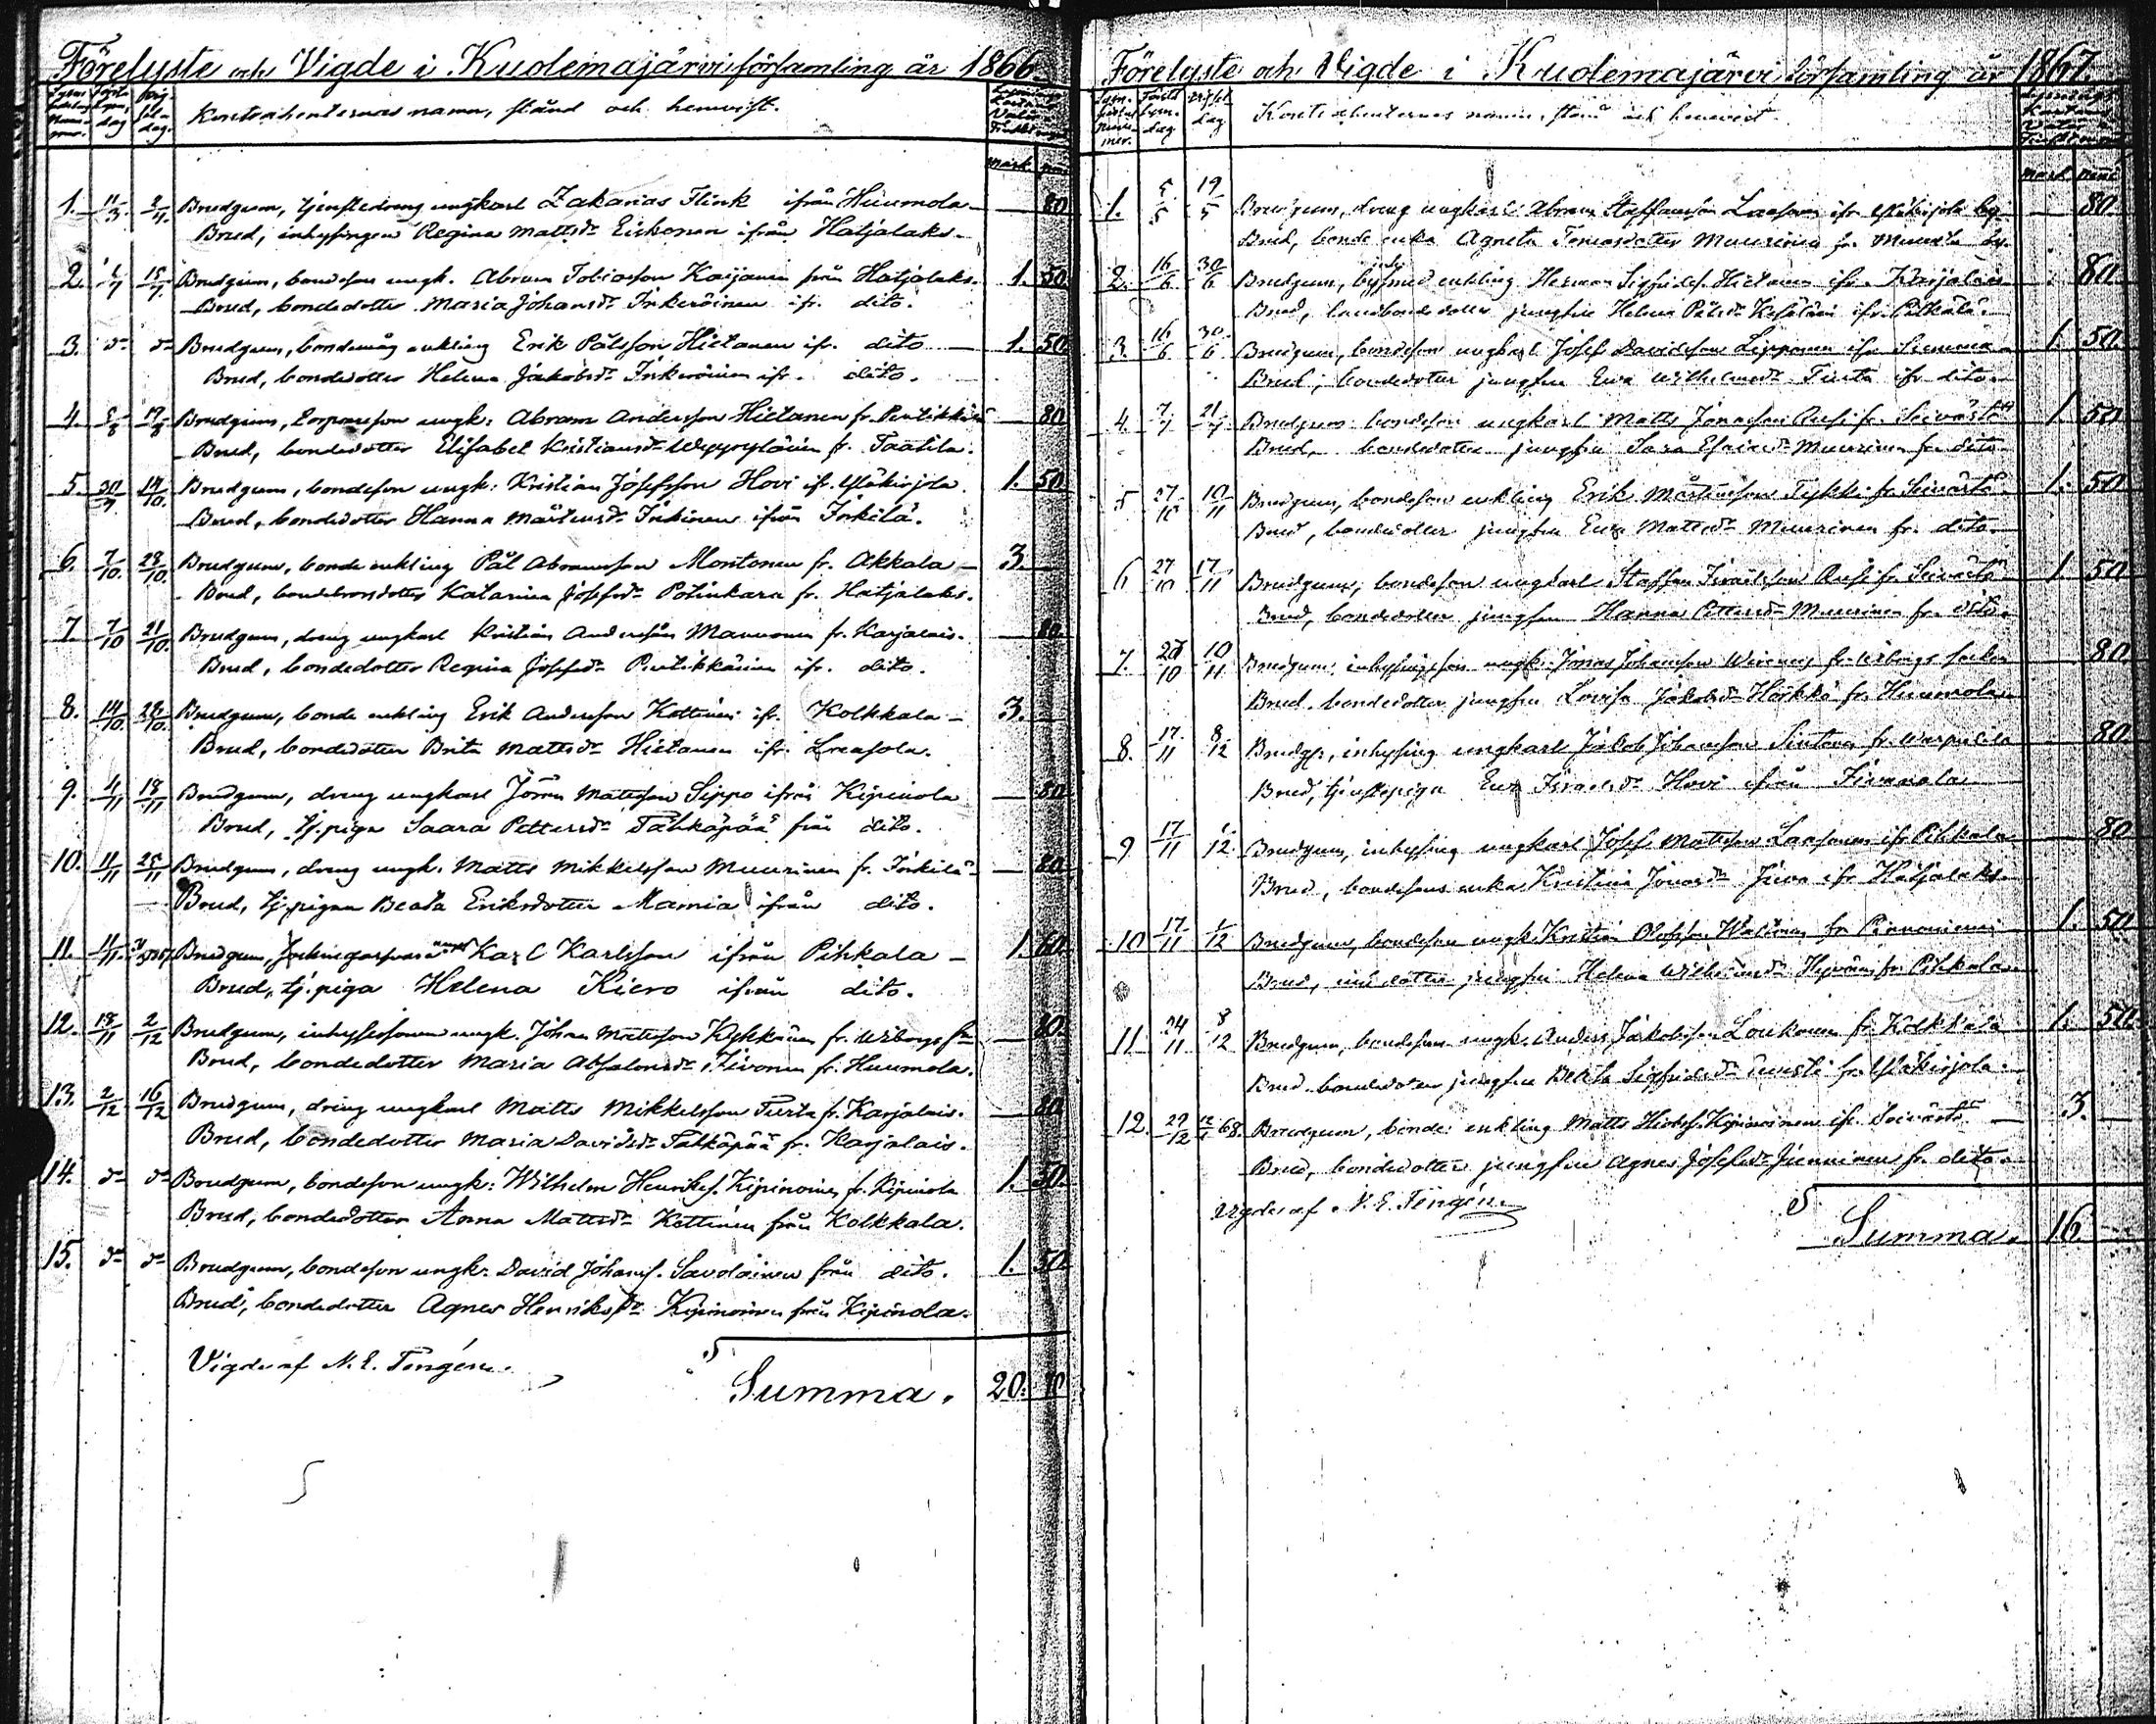 Förelyste och Vigde i Kuolemajärvi församling år 1866.
Kontrahenternas namn, stånd och hemvist.
mark
1. 11/3 2/4 Brudgum, tjenstedreng ungkarl Zakarias Flink ifrån Huumola — 80
Brud, inhysingen Regina Mattsdr Eickonen ifrån Hatjalaks.
2. 1/7 15/7 Brudgum, bondeson ungk. Abram Tobiasson Karjanen från Hatjalaks. 1. 50
Brud, bondedotter Maria Johansdr Inkeröinen ifr. dito.
3. do do Brudgum, bondemåg enkling Erik Pålsson Hietanen ifr. dito — 1. 50
Brud, bondedotter Helena Jakobsdr Inkeröinen ifr. dito.
4. 5/8 19/8 Brudgum, ungk: Abram Andersson Hietanen fr. — 80
Brud, bondedotter Elisabet Kristiansdr fr. Taatila.
5. 30/9 14/10 Brudgum, bondeson ungk: Kristian Josefsson Hovi ifr. Yläkirjola. 1. 50
Brud, bondedotter Hanna Mårtensdr Inkinen ifrån Inkilä.
6. 7/10. 28/10. Brudgum, bonde enkling Pål Abramsson Montonen fr. Akkala — 3.
Brud, Katarina Josefsdr Potinkara fr. Hatjalaks.
7. 7/10 21/10. Brudgum, dreng ungkarl Kristian Andersson Mannonen fr. Karjalais. — 80.
Brud, bondedotter Regina Josefsdr Pentikkäinen ifr. dito.
8. 14/10. 28/10. Brudgum, bonde enkling Erik Andersson Kottinen ifr. Kolkkala — 3.
Brud, bondedotter Brita Mattsdr Hietanen ifr. Laasola.
9. 4/11 18/11 Brudgum, dreng ungkarl Jöran Mattsson Sippo ifrån Kipinola — 80
Brud, tj.piga Saara Pettersdr Tähkäpää från dito.
10. 11/11 25/11 Brudgum, dreng ungk. Matts Mikkelsson Muurinen fr. Inkilä — 80.
Brud, tj.pigan Beata Eriksdotter Mamia ifrån dito.
11. 11/11. Brudgum, Karl Karlsson ifrån Pihkala — 1. 60.
Brud, tj.piga Helena Kiero ifrån dito.
12. 18/11 2/12 Brudgum, ungk. Johan Mattsson Kykkänen fr. Wiborgs — 80.
Brud, bondedotter Maria Absalonsdr Iivonen fr. Huumola.
13. 2/12 16/12 Brudgum, dreng ungkarl Matts Mikkelsson Turta fr. Karjalais. — 80
Brud, bondedotter Maria Davidsdr Tähkäpää fr. Karjalais.
14. do do Brudgum, bondeson ungk: Wilhelm Henriks. Kipinoinen fr. Kipinola 1. 50.
Brud, bondedotter Anna Mattsdr Kottinen från Kolkkala.
15. do do Brudgum, bondeson ungk. David Johans. Savolainen från dito. 1. 50
Brud, bondedotter Agnes Henriksdr Kipinoinen från Kipinola.
Vigde af N. E. Tengén.
Summa. 20. 10
Förelyste och Vigde i Kuolemajärvi församling år 1867.
Kontrahenternas namn, stånd och hemvist.
mark penni
1. 5/5 19/5 Brudgum, dreng ungkarl Abram Staffansson Laasonen ifr Yläkirjola by — 80
Brud, bonde enka Agneta Tomasdotter Muurinen fr. Muurila by.
2. 16/6 30/6 Brudgum, enkling Herman Sigfrids. Hietanen ifr. Karjalais 80
Brud, jungfru Helena Pålsdr Kesäläin ifr. Pihkala.
3. 16/6 30/6 Brudgum, bondeson ungkarl Josef Davidsson Lipponen ifr 1. 50.
Brud, bondedotter jungfru Eva Wilhelmsdr Turta ifr dito.
4. 7/7 21/7 Brudgum bondeson ungkarl Matts Jonasson Rusi fr. Seivästö 1. 50
Brud, bondedotter jungfru Sara Esaiasdr Muurinen fr. dito
5 27/10 10/11 Brudgum, bondeson enkling Erik Mårtensson Tykki fr Seivästö 1. 50
Brud, bondedotter jungfru Eva Mattsdr Muurinen fr. dito
6 27/10 17/11 Brudgum, bondeson ungkarl Staffan Israelsson Rusi fr. Seivästö 1. 50
Brud, bondedotter jungfru Hanna Pettersdr Muurinen fr. dito.
7. 27/10 10/11 Brudgum, ungk. Jonas Johansson fr. Wiborgs socken 80
Brud, bondedotter jungfru Lovisa Jakobsdr Hörkkö fr. Huumola
8. 17/11 8/12 Brudg., inhysing ungkarl Jakob Johansson Sintonen fr. 80
Brud, tjenstepiga Eva Israelsdr Hovi ifrån
9 17/11 12. Brudgum, inhysing ungkarl Josef Mattsson Laasonen ifr Pihkala 80
Brud, bondesons enka Kristina Jonasdr Juva ifr Hatjalaks.
10 17/11 1/12 Brudgum, bondeson ungk. Kristian Olofsson fr 1. 50
Brud, jungfru Helena Wilhelmsdr fr. Pihkala.
11 24/11 8/12 Brudgum, bondeson ungk. Anders Jakobsson Loukonen fr. Kolkkala 1. 50
Brud bondedotter jungfru Beata Sigfridsdr fr. Yläkirjola.
12. 29/12 68. Brudgum, bonde enkling Matts Kipinoinen ifr. Seivästö — 3.
Brud, bondedotter jungfru Agnes Josefsdr fr. dito.
Vigde af N. E. Tengén.
Summa. 16